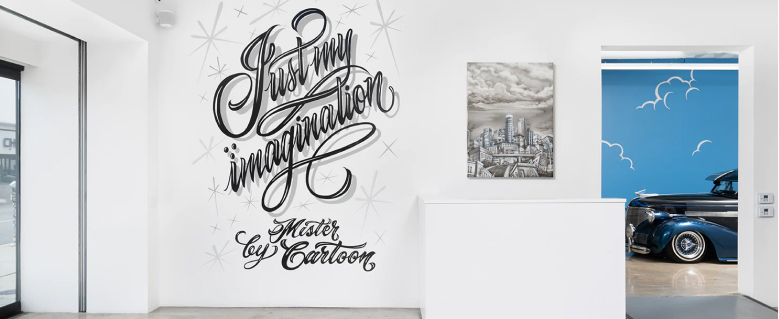 Just my
imagination
by Mister
Cartoon